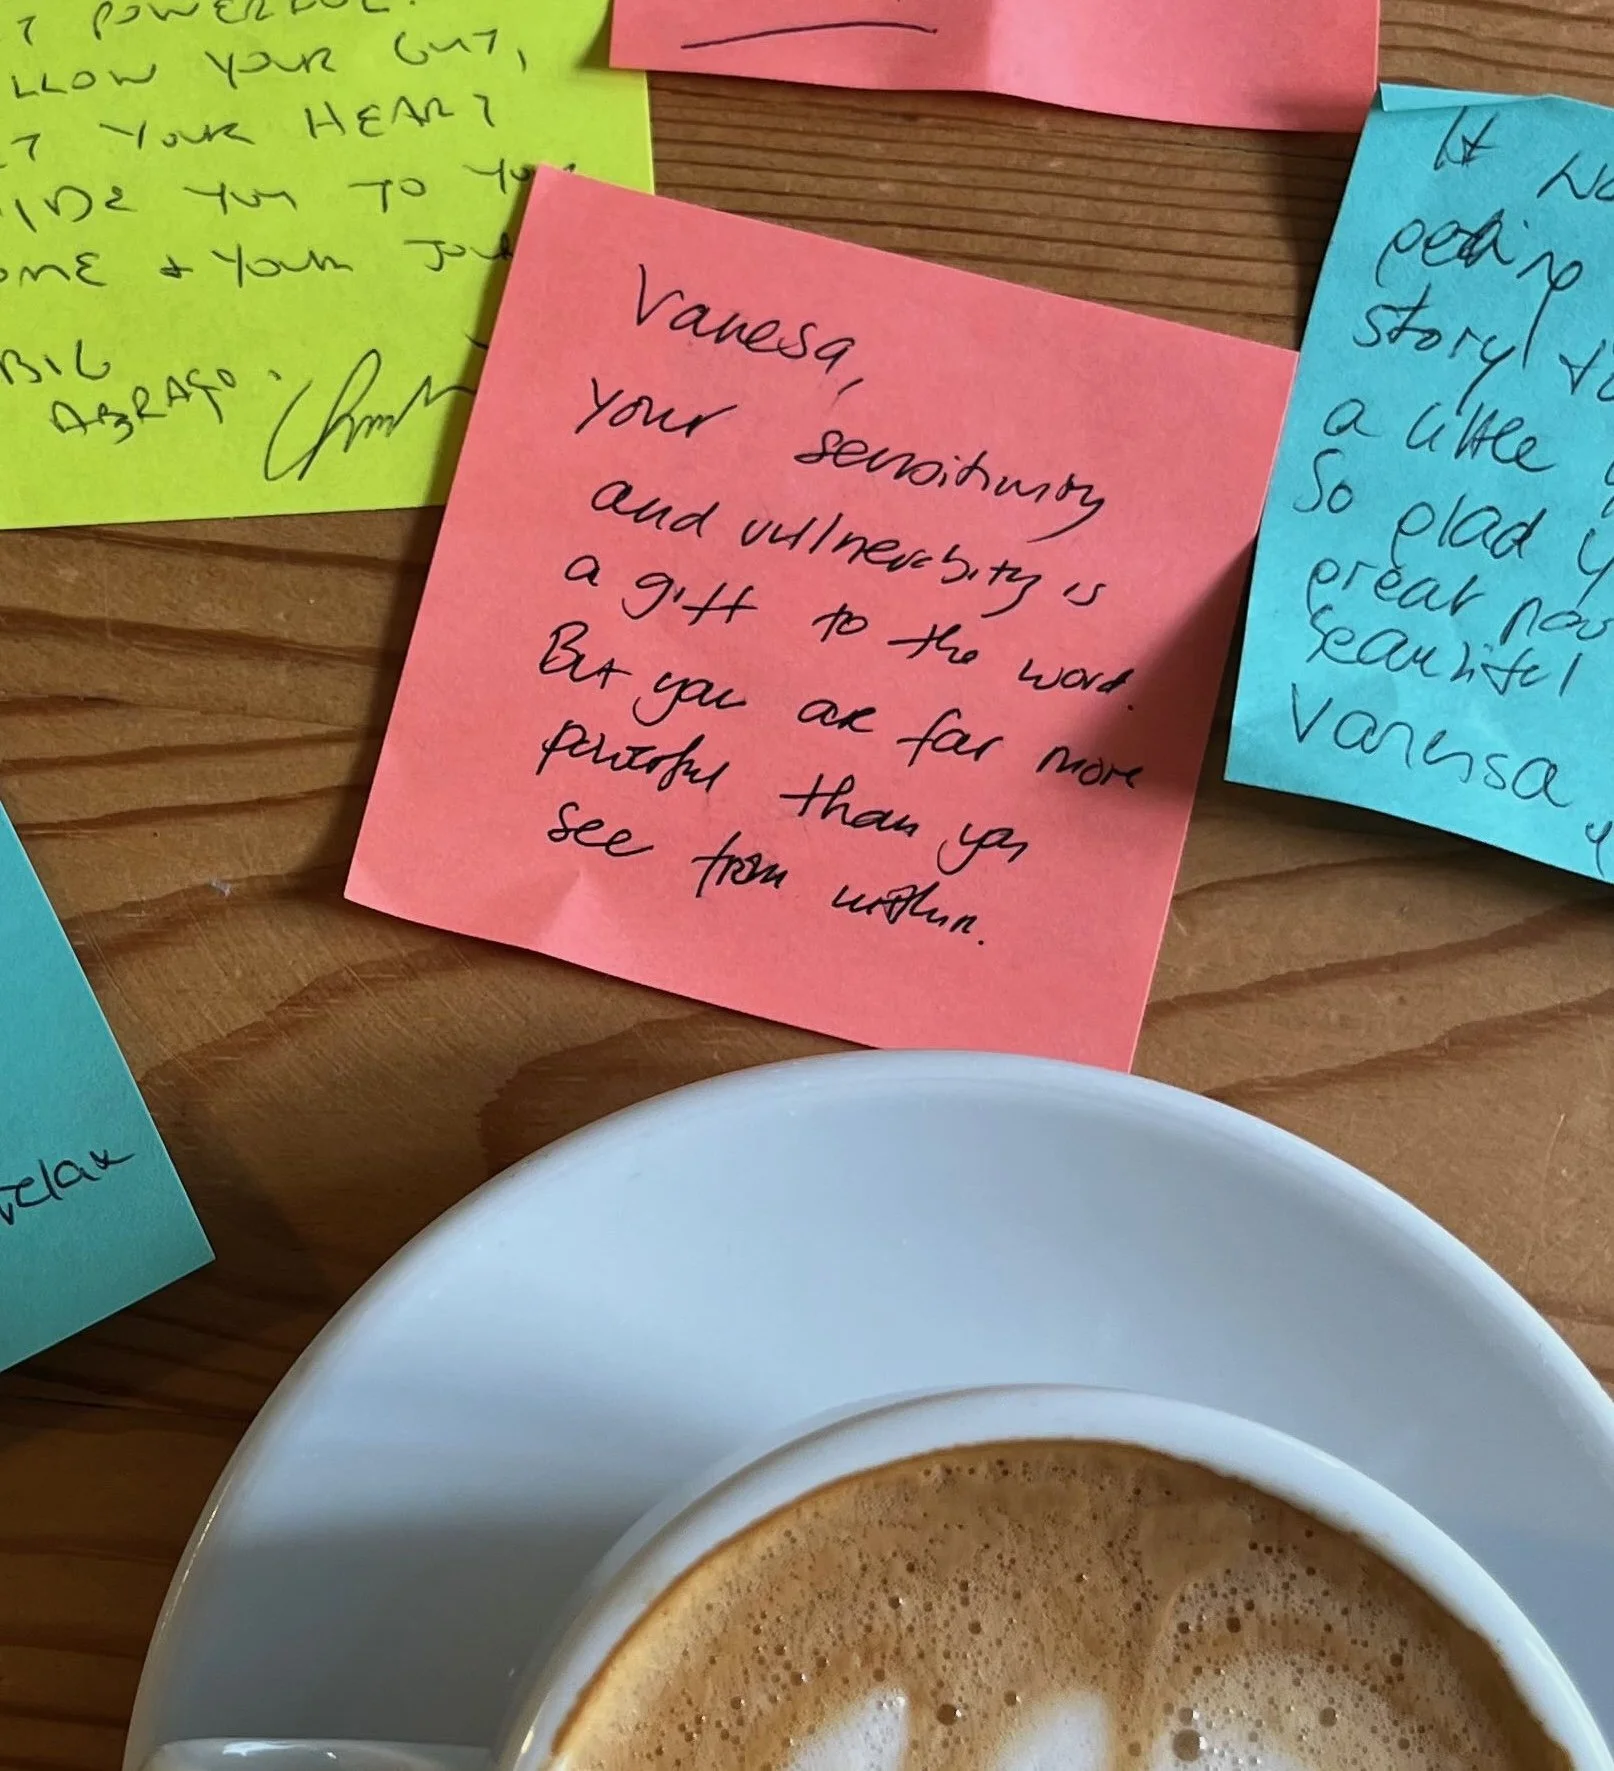 POWERFUL.
YOUR GUT,
YOUR HEART
YOU TO
& YOUR
BIG
ABRAÇO.
Vanesa,
your sensitivity
and vullnerability is
a gift to the word.
But you are far more
powerful than you
see from within.
It
story
a little
So glad
great now
beautiful
Vanessa
relax